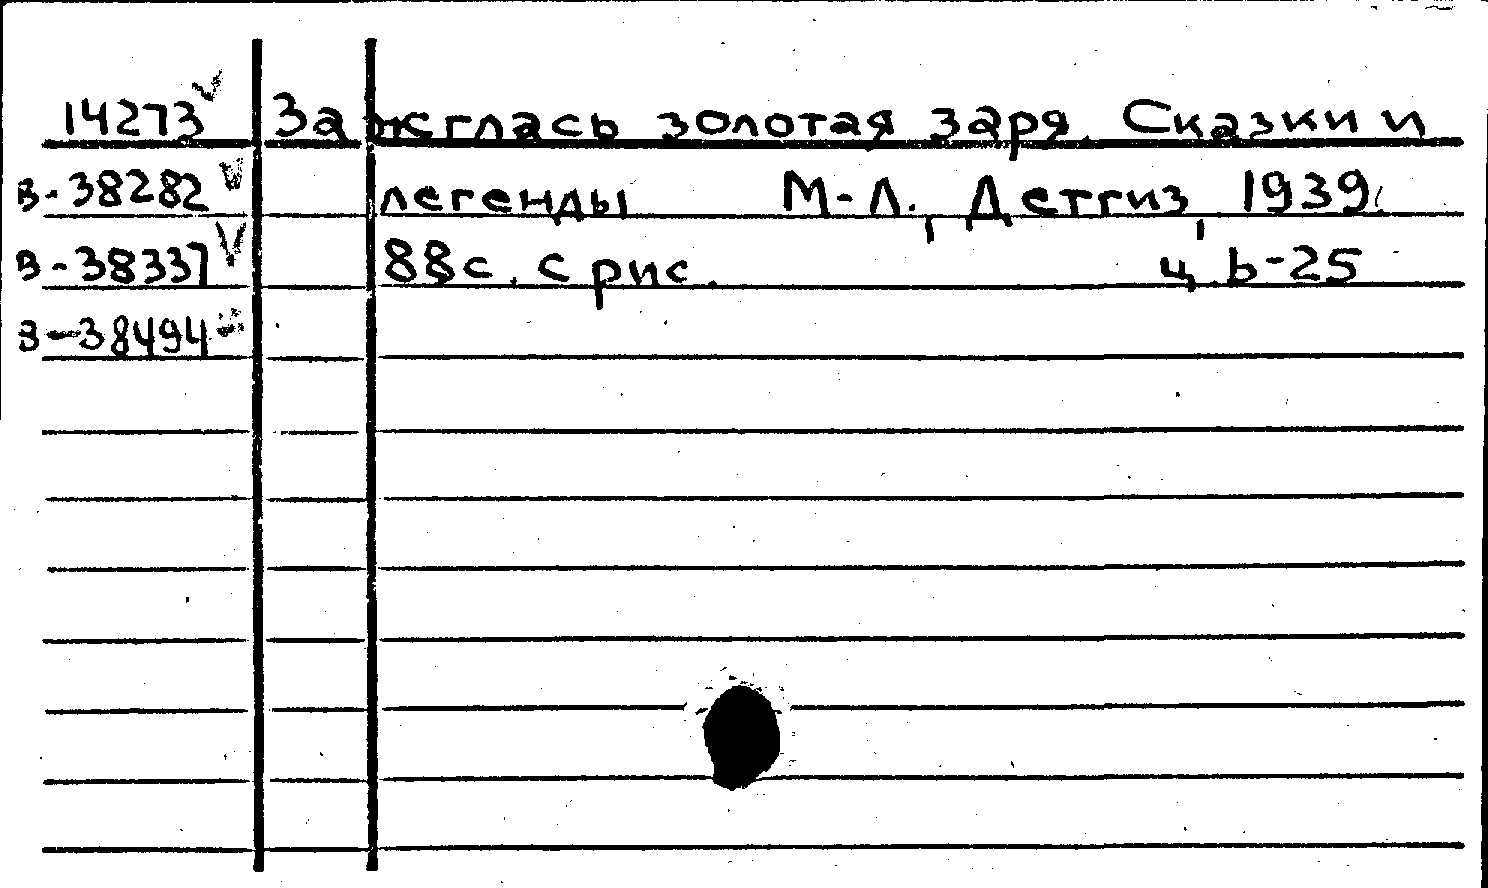 14273 Зажглась золотая заря. Сказки и
В-38282 легенды М-Л., Детгиз, 1939.
В-38337 88с. с рис. ц. Ь-25
В-38494